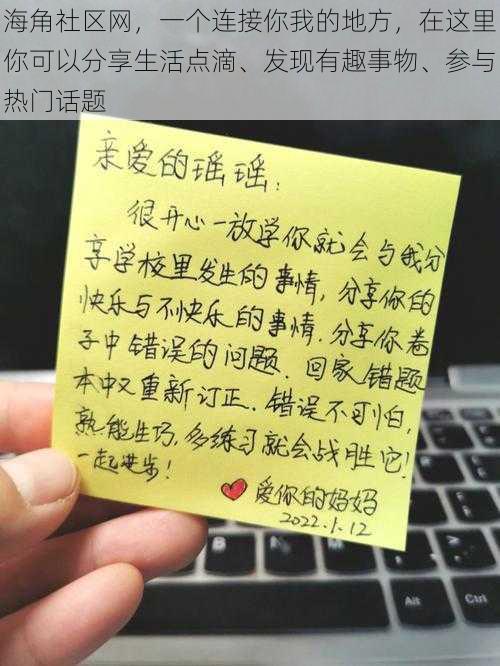 海角社区网，一个连接你我的地方，在这里
你可以分享生活点滴、发现有趣事物、参与
热门话题
亲爱的瑶瑶：
很开心一放学你就会与我分
享学校里发生的事情，分享你的
快乐与不快乐的事情．分享你卷
子中错误的问题．回家错题
本中又重新订正．错误不可怕，
熟能生巧，多练习就会战胜它！
一起进步！
爱你的妈妈
2022.1.12